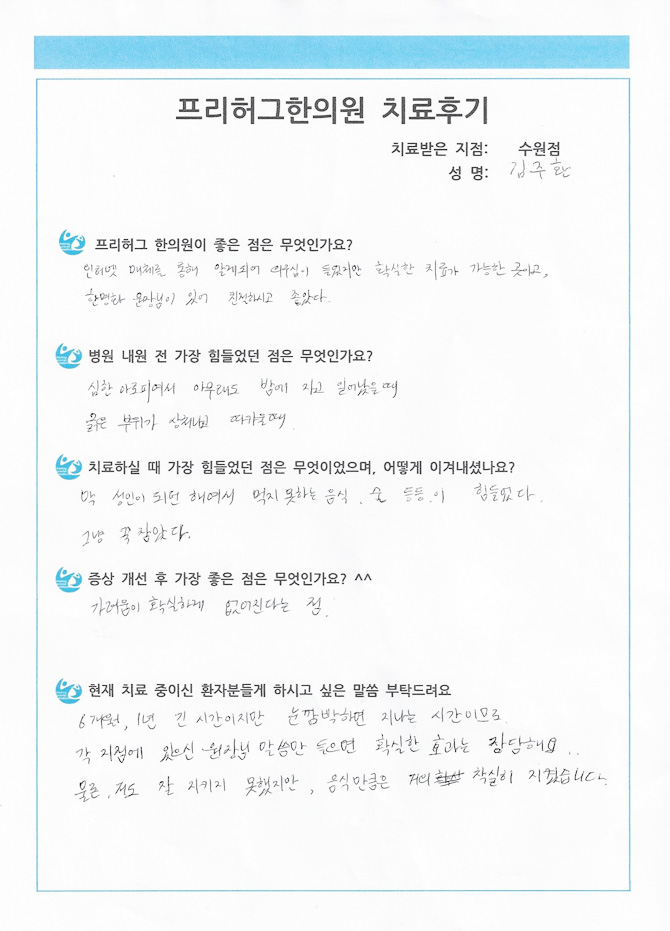 프리허그한의원 치료후기
치료받은 지점: 수원점
성 명: 김주환
프리허그 한의원이 좋은 점은 무엇인가요?
인터넷 매체를 통해 알게되어 의구심이 들었지만 확실한 치료가 가능한 곳이고,
현명한 원장님이 있어 친절하시고 좋았다.
병원 내원 전 가장 힘들었던 점은 무엇인가요?
심한 아토피여서 아무래도 밤에 자고 일어났을때
긁은 부위가 상처나고 따가울때.
치료하실 때 가장 힘들었던 점은 무엇이었으며, 어떻게 이겨내셨나요?
막 성인이 되던 해여서 먹지 못하는 음식, 술 등등.이 힘들었다.
그냥 꾹 참았다.
증상 개선 후 가장 좋은 점은 무엇인가요? ^^
가려움이 확실하게 없어진다는 점.
현재 치료 중이신 환자분들게 하시고 싶은 말씀 부탁드려요
6개월, 1년 긴 시간이지만 눈깜박하면 지나는 시간이므로
각 지점에 있으신 원장님 말씀만 들으면 확실한 효과는 장담해요..
물론, 저도 잘 지키지 못했지만, 음식만큼은 거의 착실히 지켰습니다.